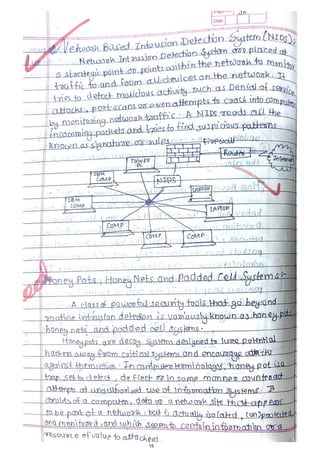 Date
Network Based Intrusion Detection System (NIDS):
Network Intrusion Detection System are placed at
a strategic point or points within the network to monitor
traffic to and from all devices on the network. It
tries to detect malicious activity such as Denial of service
attacks, port scans or even attempts to crash into computers
by monitoring network traffic. A NIDS reads all the
incomming packets and tries to find suspicious patterns
known as signature or rules.
Firewall
Router
Internet
TOWER
PC
IBM
COMP
NIDS
LAPTOP
IBM
COMP
LAPTOP
COMP
COMP
COMP
Honey Pots, Honey Nets and Padded Cell Systems:-
A class of powerful security tools that go beyond
routine intrusion detection is variously known as honey pots,
honey nets and padded cell systems.
Honeypots are decoy systems designed to lure potential
hackers away from critical systems and encourage attacks
against themselves. In computer terminology, honey pot is a
trap set to detect, deflect or in some manner counteract
attempts at unauthorized use of Information Systems. It
consists of a computer, data or a network site that appears
to be part of a network but is actually isolated, (un)protected,
and monitored, and which seems to contain information or a
resource of value to attackers.
15